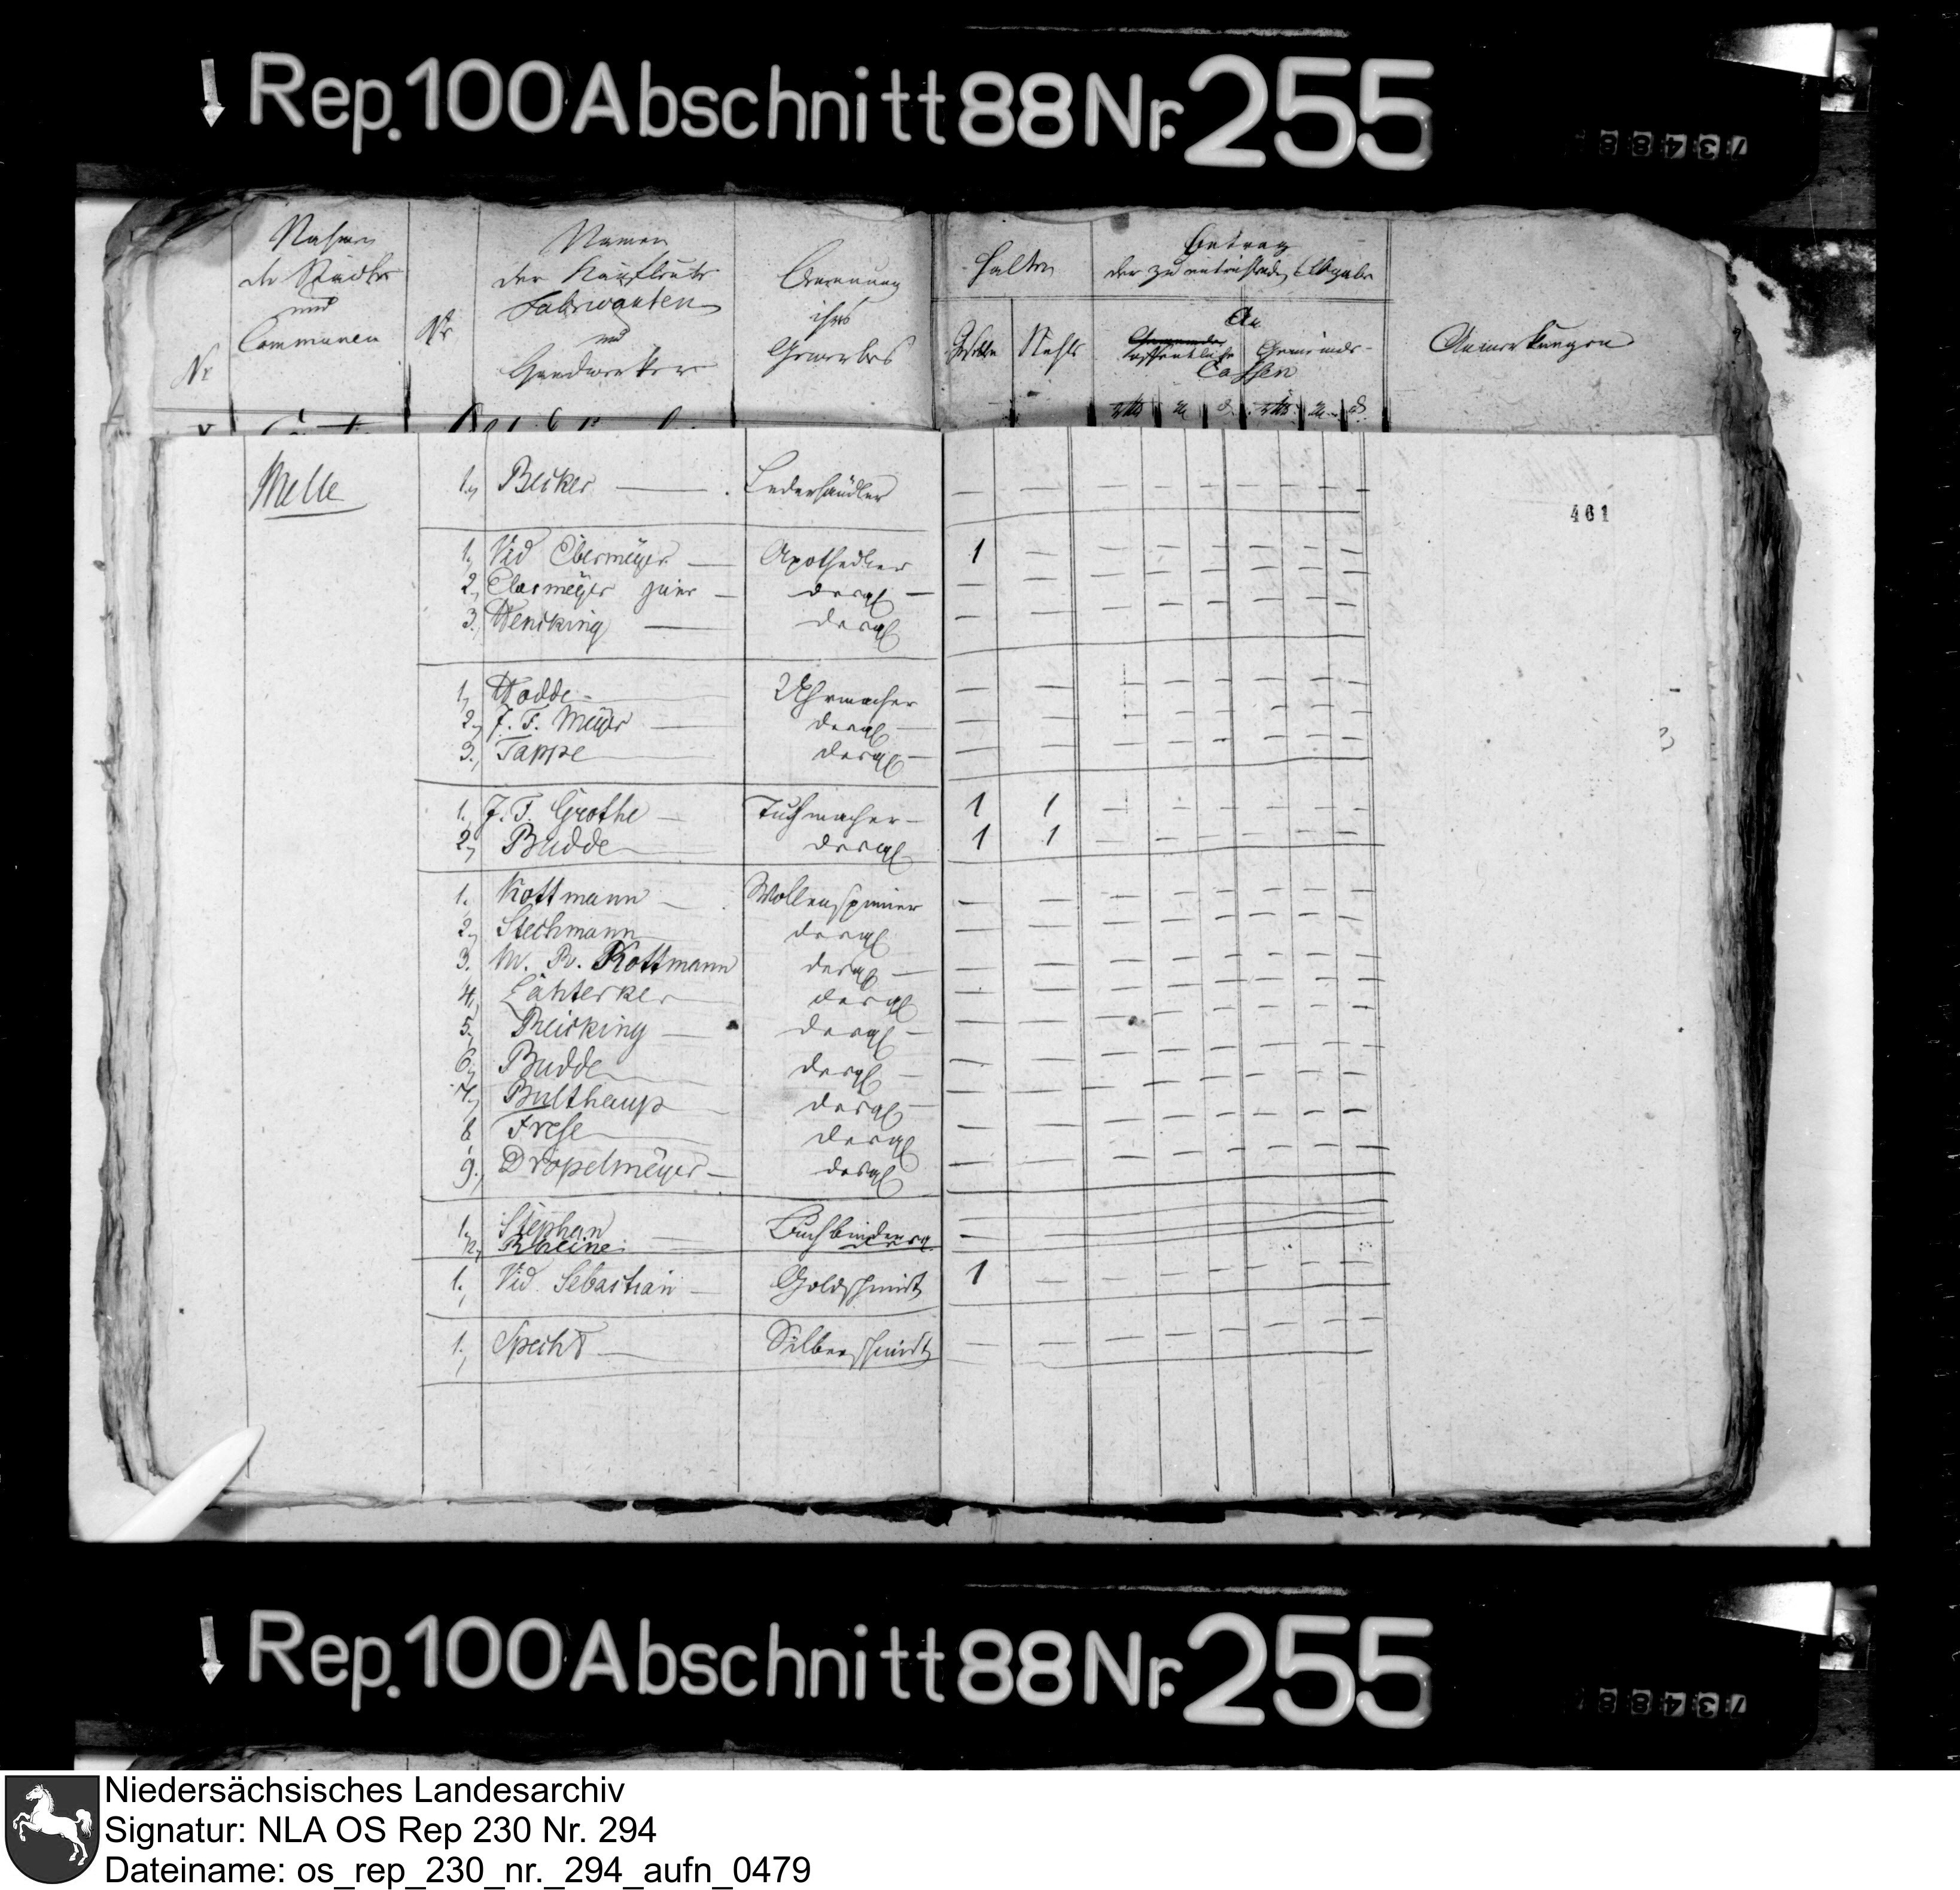 Rep. 100 Abschnitt 88 Nr. 255
73488
Nr
Nahmen
der Städte
und
Communen
Nr
Namen
der Kaufleute
Fabricanten
und
Handwerker
Benennung
ihres
Gewerbes
Halten
Gesellen
Betrag
der zu entrichtenden Abgabe
An
Gemeinde-
Cassen
Anmerkungen
461
Melle
1, Becker — Lederhändler — — — — — — — —
1, Vid Obermeÿer — Apotheker 1 — — — — — — —
2, — dergl — — — — — — — —
3. Wencking — dergl — — — — — — — —
1, Wodde — Uhrmacher — — — — — — — —
2, J. F. Meÿer — dergl — — — — — — — —
3., Tappe — dergl — — — — — — — —
1., J. F. Grothe — Tuchmacher 1 1 — — — — — —
2, Budde — dergl 1 1 — — — — — —
1. Kottmann — Wollenspinner — — — — — — — —
2, Stechmann dergl — — — — — — — —
3. M. R. Kottmann dergl — — — — — — — —
4, dergl — — — — — — — —
5, Reicking — dergl — — — — — — — —
6, Budde — dergl — — — — — — — —
7, Bulthaup — dergl — — — — — — — —
8 Frese — dergl — — — — — — — —
9., Dropelmeÿer — dergl — — — — — — — —
1, Stephan — Buchbinder —
2, Rheine dergl —
1., Vid. Sebastian — Goldschmidt 1 — — — — — — —
1., Specht — Silberschmidt — — — — — — — —
Rep. 100 Abschnitt 88 Nr. 255
73488
Niedersächsisches Landesarchiv
Signatur: NLA OS Rep 230 Nr. 294
Dateiname: os_rep_230_nr._294_aufn_0479